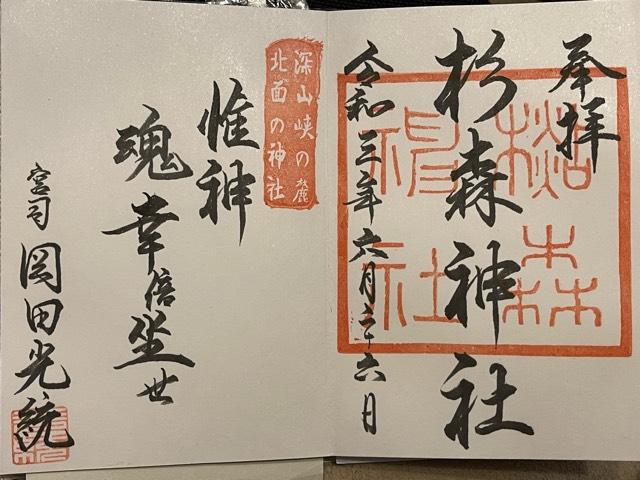 奉拝
杉森神社
令和三年六月二十六日
深山峡の麓
北面の神社
惟神
魂幸倍坐世
宮司 岡田光統